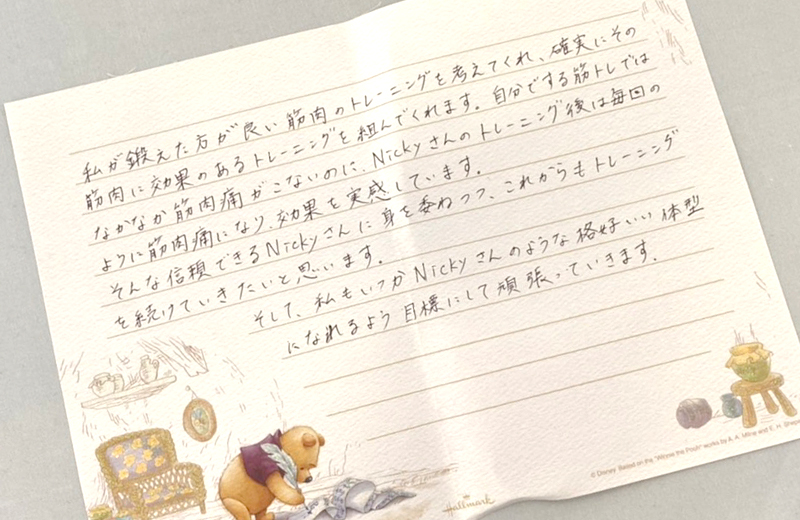 私が鍛えた方が良い筋肉のトレーニングを考えてくれ、確実にその
筋肉に効果のあるトレーニングを組んでくれます。自分でする筋トレでは
なかなか筋肉痛がこないのに、Nickyさんのトレーニング後は毎回の
ように筋肉痛になり、効果を実感しています。
そんな信頼できるNickyさんに身を委ねつつ、これからもトレーニング
を続けていきたいと思います。
そして、私もいつかNickyさんのような格好いい体型
になれるよう目標にして頑張っていきます.
© Disney Based on the "Winnie the Pooh" works by A. A. Milne and E. H. Shepard
Hallmark